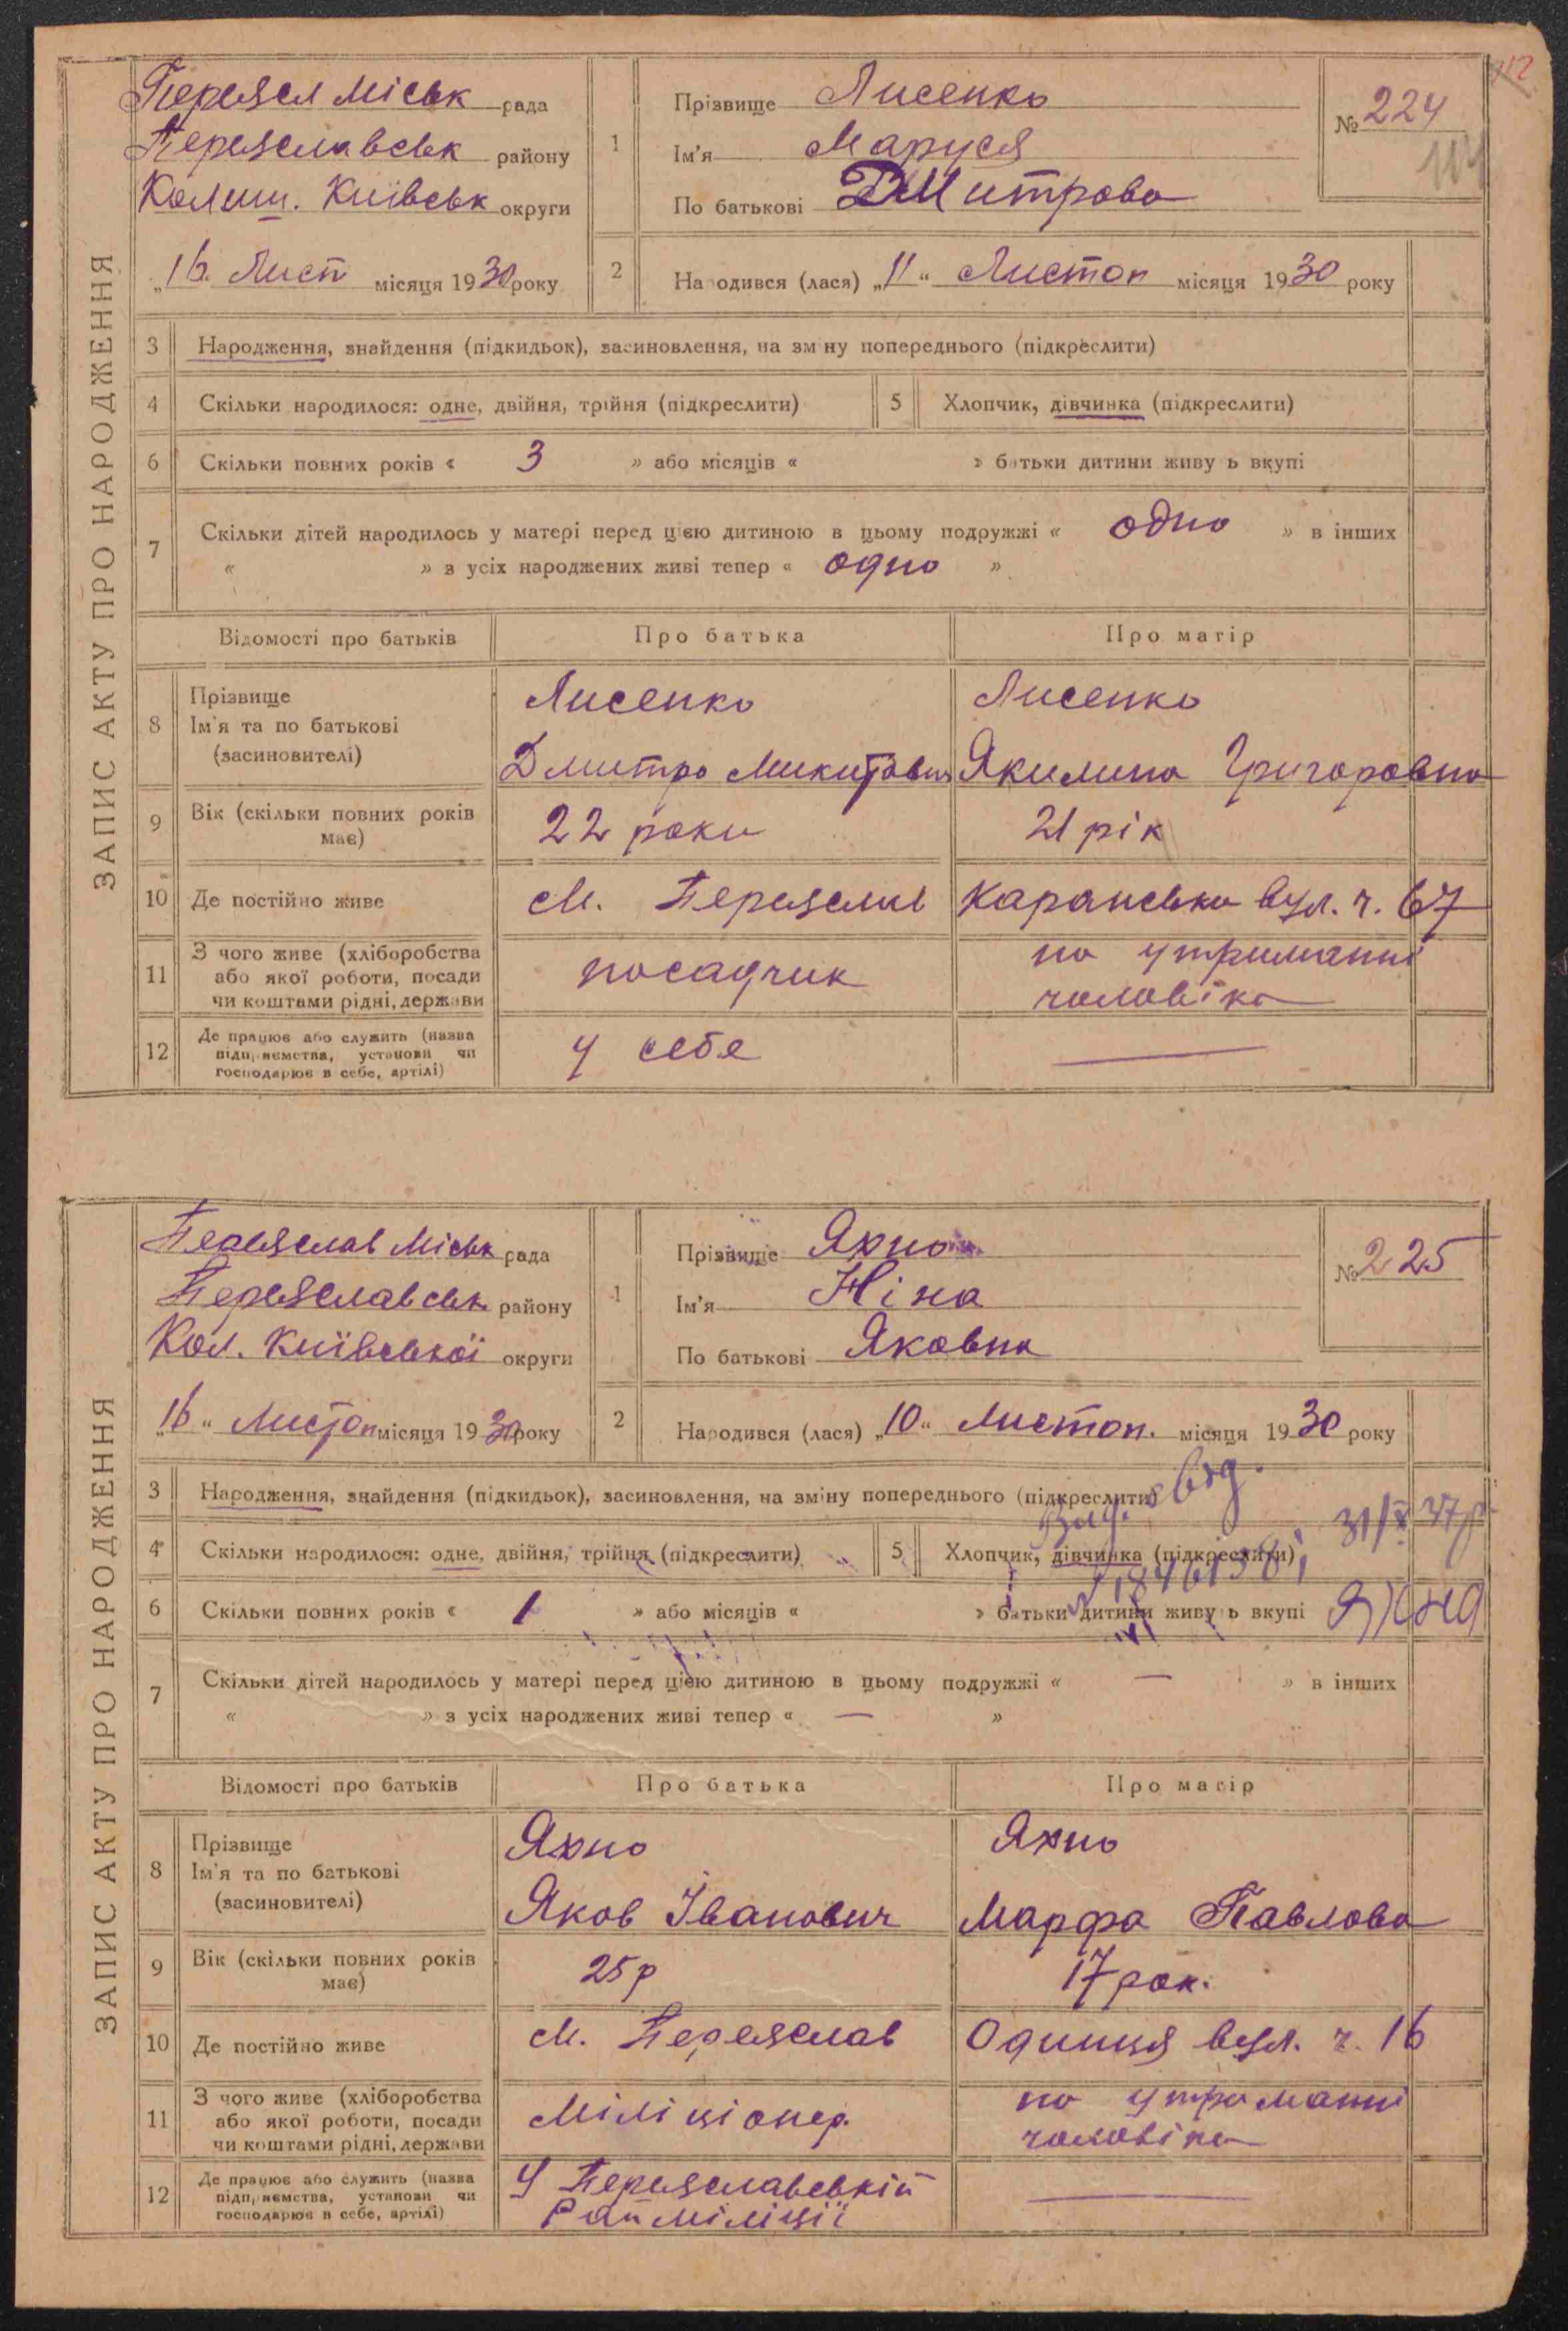 112
ЗАПИС АКТУ ПРО НАРОДЖЕННЯ
Переясл міськ рада
Переяславськ району
Колиш. Київськ округи
„16 Лист місяця 1930 року
1 Прізвище Лисенко
Ім'я Маруся
По батькові Дмитрова
№ 224
2 Народився (лася) „11“ Листоп місяця 1930 року
3 Народження, знайдення (підкидьок), засиновлення, на зміну попереднього (підкреслити)
4 Скільки народилося: одне, двійня, трійня (підкреслити) 5 Хлопчик, дівчинка (підкреслити)
6 Скільки повних років « 3 » або місяців « » батьки дитини живуть вкупі
7 Скільки дітей народилось у матері перед цією дитиною в цьому подружжі « одно » в інших
« » з усіх народжених живі тепер « одно »
Відомості про батьків Про батька Про матір
8 Прізвище Лисенко Лисенко
Ім'я та по батькові
(засиновителі) Дмитро Микитович Якилина Григоровна
9 Вік (скільки повних років має) 22 роки 21 рік
10 Де постійно живе м. Переяслав Каранська вул. ч. 67
11 З чого живе (хліборобства або якої роботи, посади чи коштами рідні, держави посадчик на утриманні чоловіка
12 Де працює або служить (назва підприємства, установи чи господарює в себе, артілі) у себе —
ЗАПИС АКТУ ПРО НАРОДЖЕННЯ
Переяслав Міськ рада
Переяславськ району
Кол. Київської округи
„16“ Листоп місяця 1930 року
1 Прізвище Яхно
Ім'я Ніна
По батькові Яковна
№ 225
2 Народився (лася) „10“ Листоп. місяця 1930 року
3 Народження, знайдення (підкидьок), засиновлення, на зміну попереднього (підкреслити)
4 Скільки народилося: одне, двійня, трійня (підкреслити) 5 Хлопчик, дівчинка (підкреслити)
6 Скільки повних років « 1 » або місяців « » батьки дитини живуть вкупі
Яхно
7 Скільки дітей народилось у матері перед цією дитиною в цьому подружжі « — » в інших
« » з усіх народжених живі тепер « — »
Відомості про батьків Про батька Про матір
8 Прізвище Яхно Яхно
Ім'я та по батькові
(засиновителі) Яков Іванович Марфа Павлова
9 Вік (скільки повних років має) 25 р 17 рок.
10 Де постійно живе м. Переяслав Одинця вул. ч. 16
11 З чого живе (хліборобства або якої роботи, посади чи коштами рідні, держави Міліціонер. на утриманні чоловіка
12 Де працює або служить (назва підприємства, установи чи господарює в себе, артілі) У Переяславській Рай міліції —